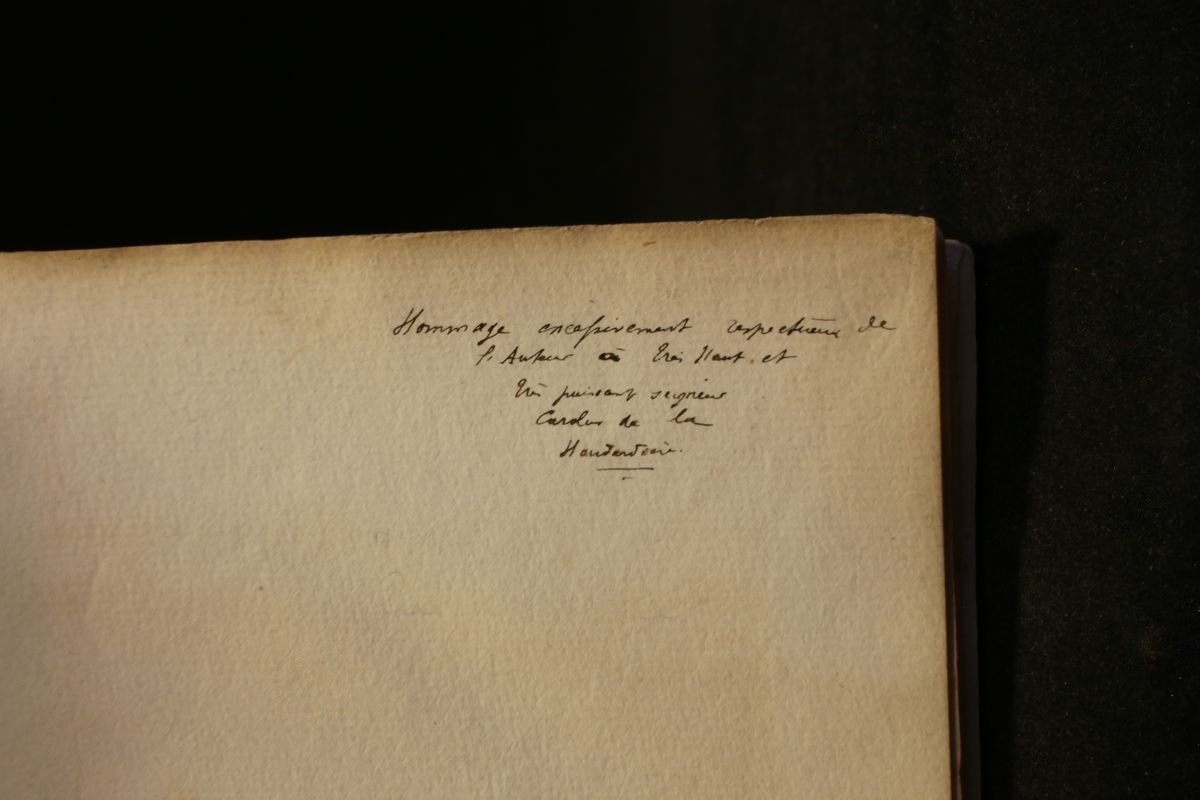 Hommage excessivement respectueux de
l'Auteur à Très Haut et
très puissant seigneur
Carolus de la